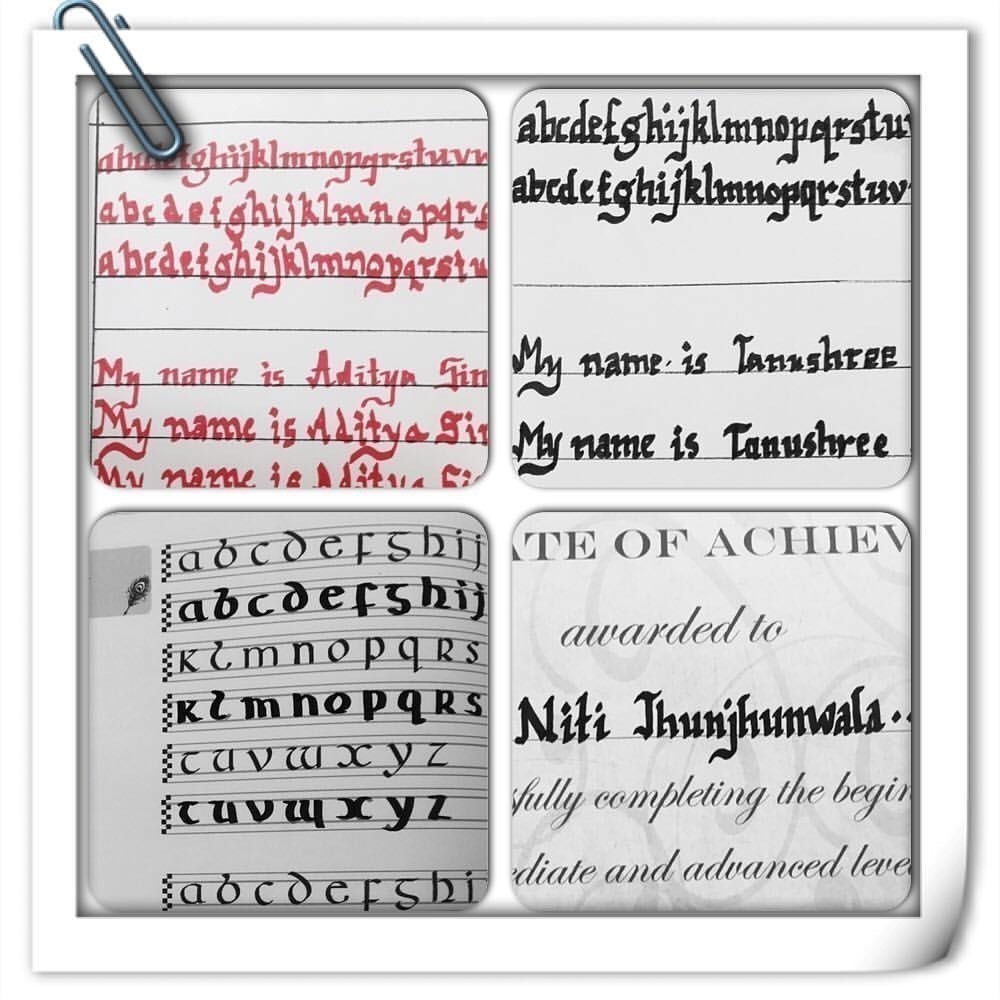 abcdefghijklmnopqrstuvw
abcdefghijklmnopqrs
abcdefghijklmnopqrstu
My name is Aditya Sin
My name is Aditya Sin
My name is Aditya Si
abcdefghijklmnopqrstuv
abcdefghijklmnopqrstuv
My name is Tanushree
My name is Tanushree
abcdefghij
abcdefghij
klmnopqrs
klmnopqrs
tuvwxyz
tuvwxyz
abcdefghi
ATE OF ACHIEV
awarded to
Niti Jhunjhunwala..
sfully completing the begin
ediate and advanced leve